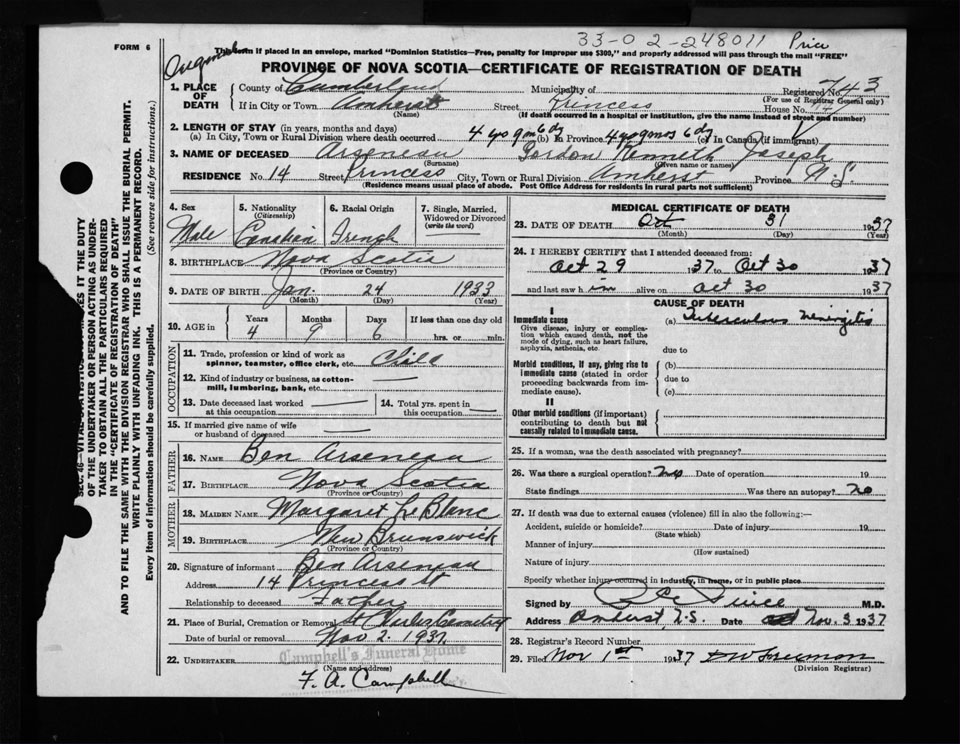 33-02-248011 Price
FORM 6
This form if placed in an envelope, marked "Dominion Statistics—Free, penalty for improper use $300," and properly addressed will pass through the mail "FREE"
PROVINCE OF NOVA SCOTIA—CERTIFICATE OF REGISTRATION OF DEATH
1. PLACE OF DEATH
County of Cumberland Municipality of Registered No. 743
(For use of Registrar General only)
If in City or Town Amherst Street Princess House No. 14
(Name) (If death occurred in a hospital or institution, give the name instead of street and number)
2. LENGTH OF STAY (in years, months and days)
(a) In City, Town or Rural Division where death occurred 4 yo 9m 6dy (b) In Province 4yo 9mos 6 dy (c) In Canada (if immigrant)
3. NAME OF DECEASED Arseneau Gordon Kenneth Joseph
(Surname) (Given name or names)
RESIDENCE No. 14 Street Princess City, Town or Rural Division Amherst Province N.S.
(Residence means usual place of abode. Post Office Address for residents in rural parts not sufficient)
4. Sex
Male
5. Nationality
(Citizenship)
Canadian
6. Racial Origin
French
7. Single, Married, Widowed or Divorced
(write the word)
8. BIRTHPLACE Nova Scotia
(Province or Country)
9. DATE OF BIRTH Jan. 24 1933
(Month) (Day) (Year)
10. AGE in Years Months Days If less than one day old
4 9 6 hrs. or min.
OCCUPATION
11. Trade, profession or kind of work as spinner, teamster, office clerk, etc. Child
12. Kind of industry or business, as cotton-mill, lumbering, bank, etc. —
13. Date deceased last worked at this occupation —
14. Total yrs. spent in this occupation —
15. If married give name of wife or husband of deceased —
FATHER
16. NAME Ben Arseneau
17. BIRTHPLACE Nova Scotia
(Province or Country)
MOTHER
18. MAIDEN NAME Margaret LeBlanc
19. BIRTHPLACE New Brunswick
(Province or Country)
20. Signature of informant Ben Arseneau
Address 14 Princess St
Relationship to deceased Father
21. Place of Burial, Cremation or Removal St Charles Cemetery
Date of burial or removal Nov 2. 1937
22. UNDERTAKER Campbell's Funeral Home
(Name and address)
F. A. Campbell
MEDICAL CERTIFICATE OF DEATH
23. DATE OF DEATH Oct 31 1937
(Month) (Day) (Year)
24. I HEREBY CERTIFY that I attended deceased from:
Oct 29 1937 to Oct 30 1937
and last saw him alive on Oct 30 1937
CAUSE OF DEATH
I
Immediate cause
Give disease, injury or complication which caused death, not the mode of dying, such as heart failure, asphyxia, asthenia, etc.
(a) Tuberculous Meningitis
due to
Morbid conditions, if any, giving rise to immediate cause (stated in order proceeding backwards from immediate cause).
(b)
due to
(c)
II
Other morbid conditions (if important) contributing to death but not causally related to immediate cause.
25. If a woman, was the death associated with pregnancy?
26. Was there a surgical operation? no Date of operation 19
State findings Was there an autopsy? no
27. If death was due to external causes (violence) fill in also the following:—
Accident, suicide or homicide? Date of injury 19
(State which)
Manner of injury
(How sustained)
Nature of injury
Specify whether injury occurred in industry, in home, or in public place
Signed by Price M.D.
Address Amherst, N.S. Date Nov. 3 1937
28. Registrar's Record Number
29. Filed Nov 1st 1937 DW Freeman
(Division Registrar)
OF THE UNDERTAKER OR PERSON ACTING AS UNDERTAKER TO OBTAIN ALL THE PARTICULARS REQUIRED IN THE "CERTIFICATE OF REGISTRATION OF DEATH"
AND TO FILE THE SAME WITH THE DIVISION REGISTRAR WHO SHALL ISSUE THE BURIAL PERMIT.
WRITE PLAINLY WITH UNFADING INK. THIS IS A PERMANENT RECORD.
Every item of information should be carefully supplied. (See reverse side for instructions.)